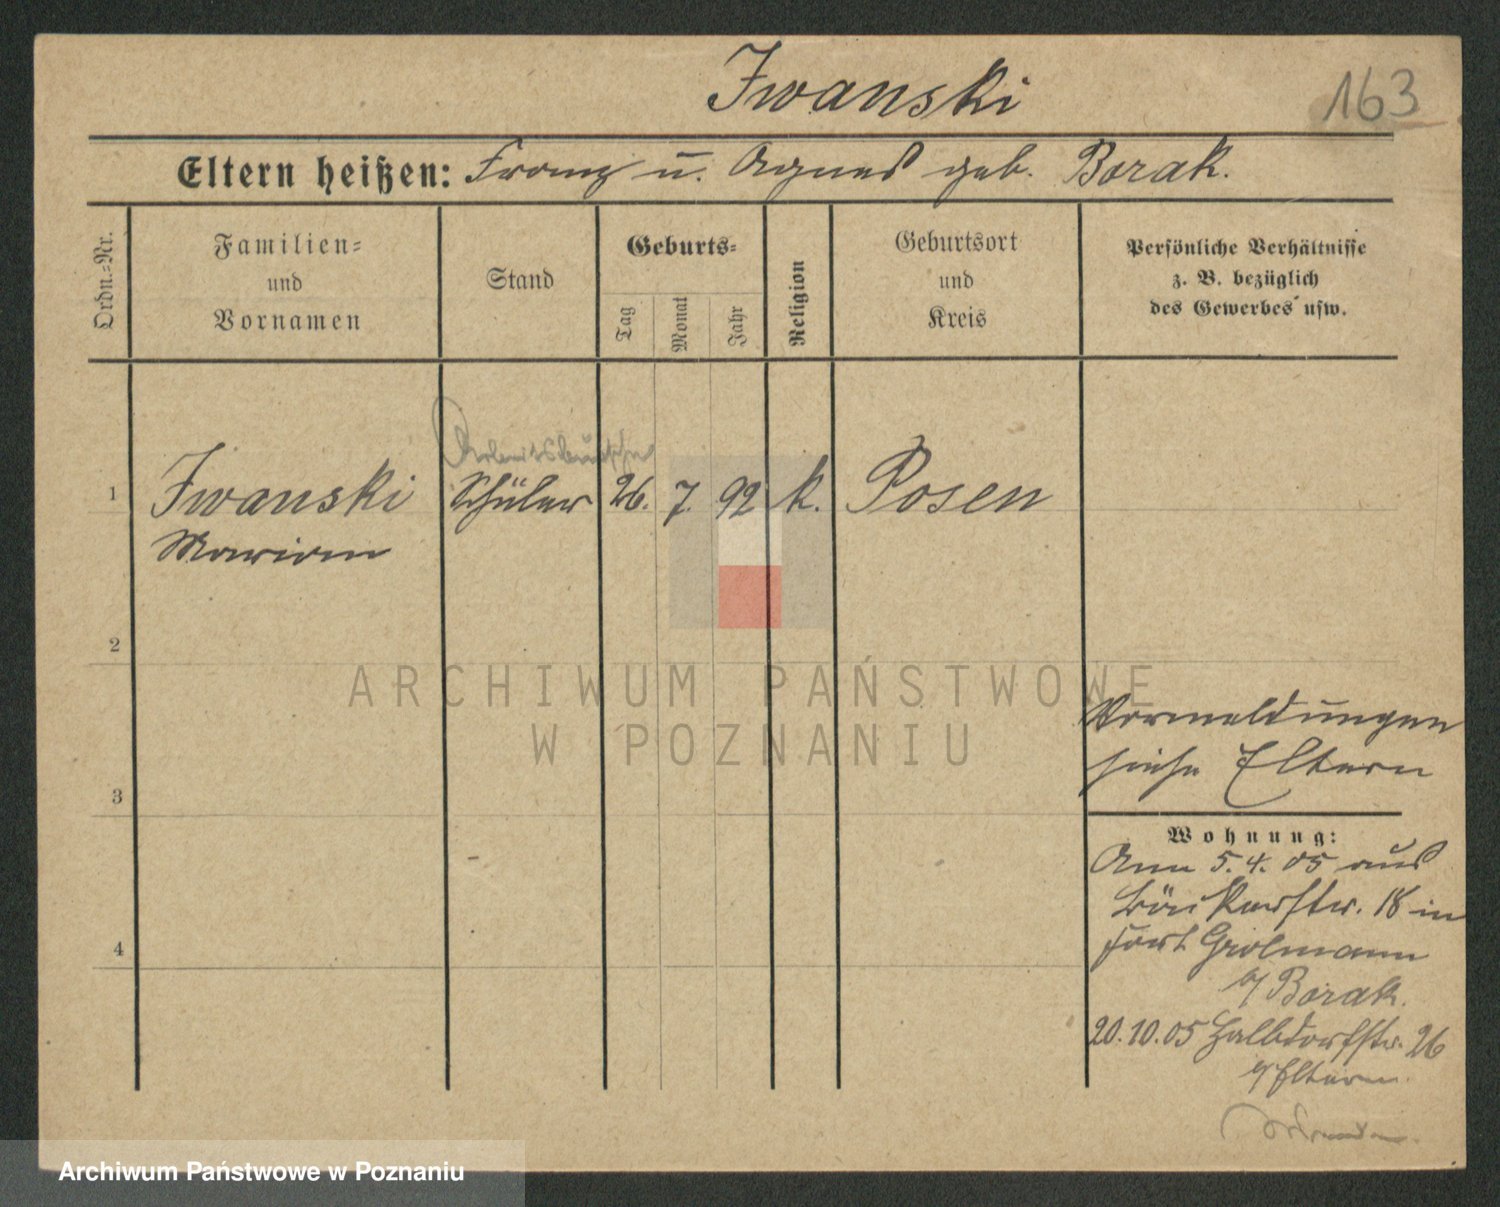 Iwanski
163
Eltern heißen: Franz u. Agnes geb. Borak.
Ordn.=Nr.
Familien=
und
Vornamen
Stand
Geburts=
Tag
Monat
Jahr
Religion
Geburtsort
und
Kreis
Persönliche Verhältnisse
z. B. bezüglich
des Gewerbes usw.
Arbeitsbursche
1 Iwanski Schüler 26. 7. 92 k. Posen
Marian
2
ARCHIWUM PAŃSTWOWE
W POZNANIU
Vormeldungen
siehe Eltern
3
Wohnung:
Am 5.4.05 aus
Bäckerstr. 18 in
Fort Grolmann
b/ Borak.
4
20.10.05 Halbdorfstr. 26
b/ Eltern.
Archiwum Państwowe w Poznaniu